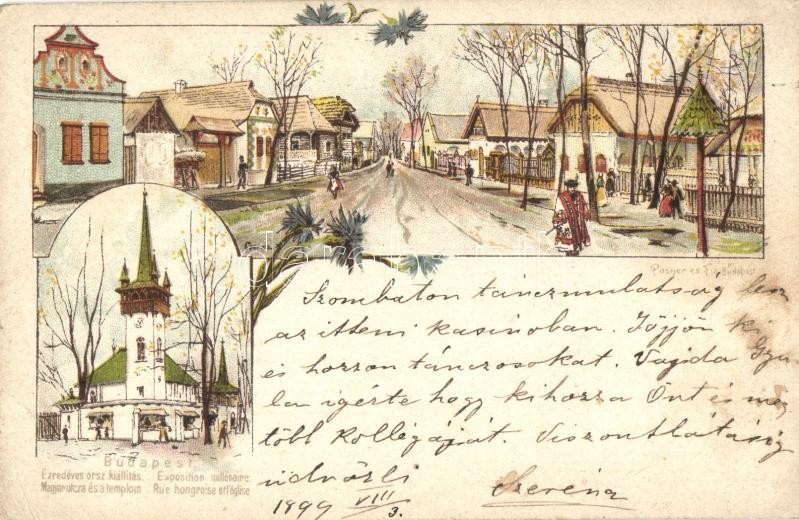 Posner és Fia Budapest
Szombaton táncmulatság lesz
az itteni kasinoban. Jőjjön ki
és hozzon táncosokat. Vajda Gyu-
la igérte hogy kihozza Önt és még
több kollégáját. Viszontlátásig
üdvözli
1899 VIII/3. Szeréna
Budapest
Ezredéves orsz. kiállítás. Exposition millénaire.
Magyar utcza és a templom Rue hongroise et l'église